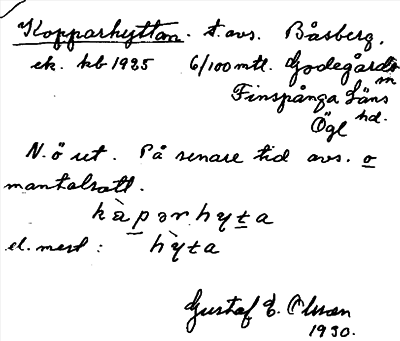 Kopparhyttan. t. avs. Båsberg.
ek. kb 1925 6/100 mtl. Godegårds
sn
Finspånga Läns
hd.
Ögl
N. ö ut. På senare tid avs. o
mantalsatt.
kàpər hyta
el. mest: hỳta
Gustaf E. Olsson
1930.